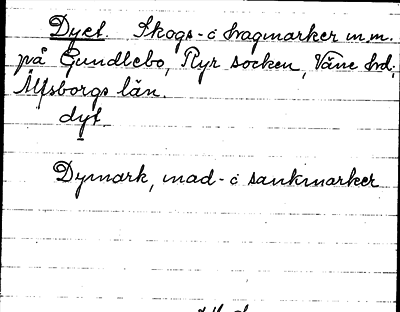 Dyet. Skogs- o hagmarker m.m.
på Gundlebo, Ryr socken, Väne hd,
Älfsborgs län.
dyt
Dymark, mad- o sankmarker